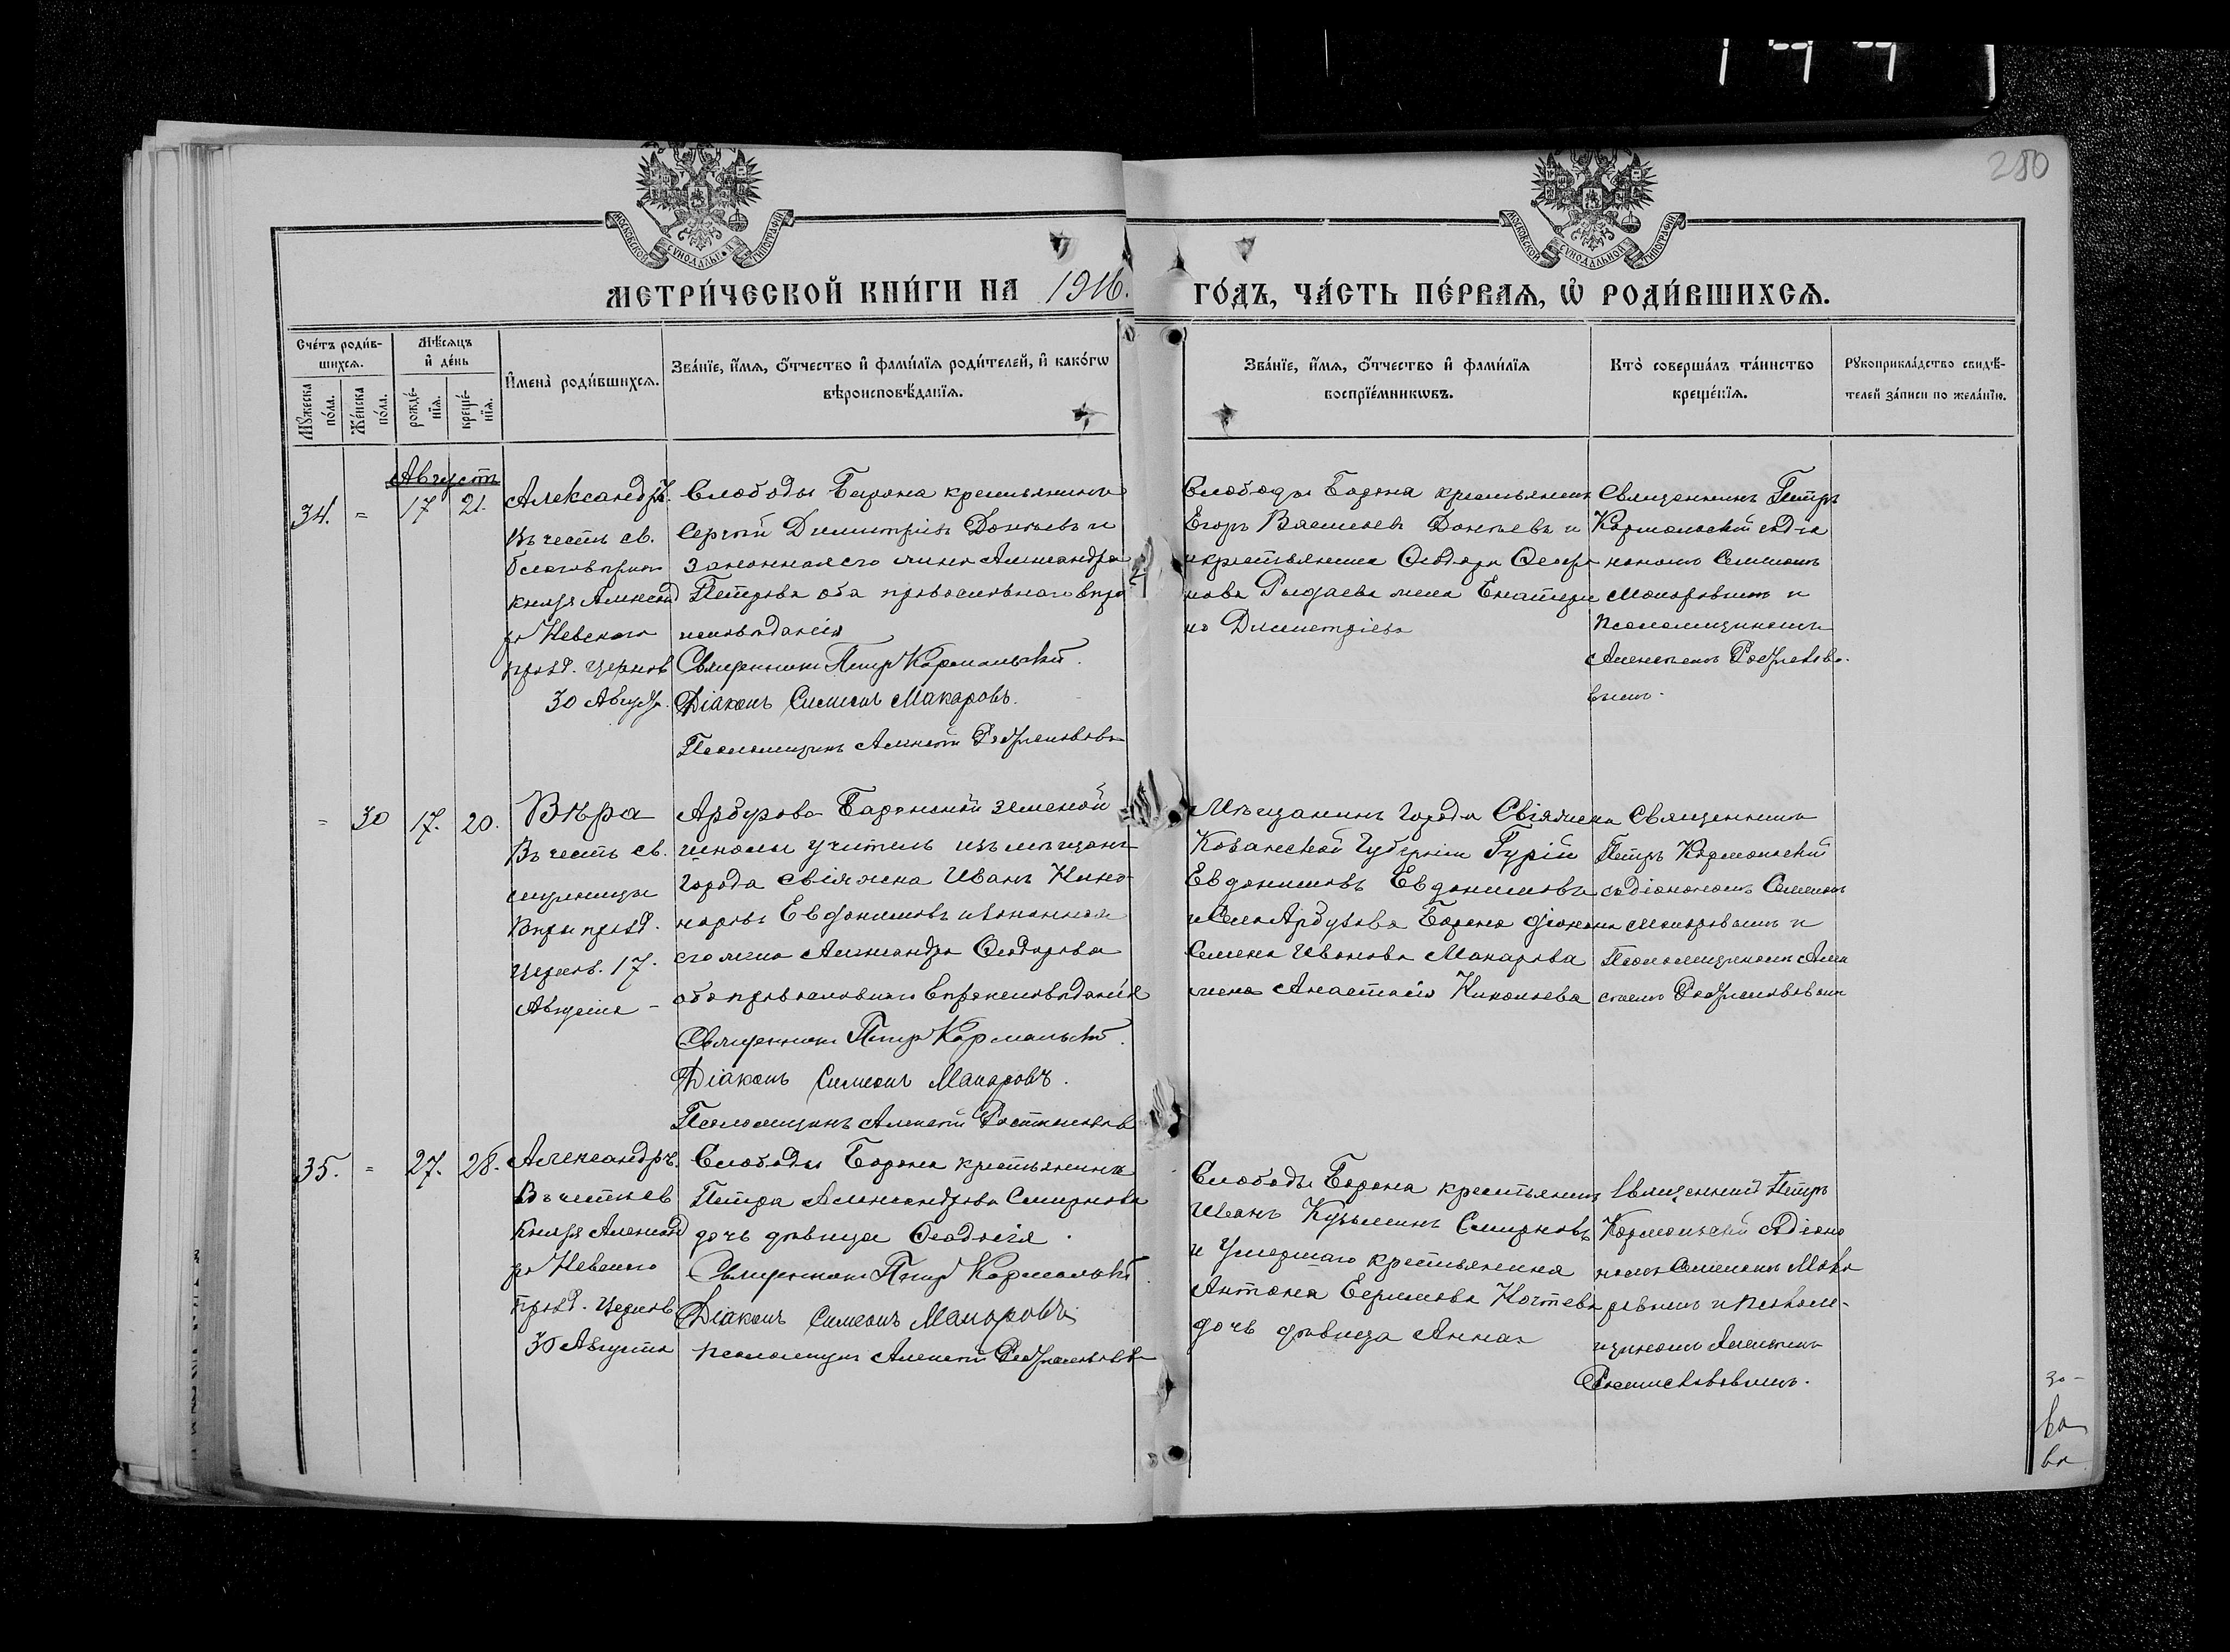 280
МОСКОВСКОЙ СѴНОДАЛЬНОЙ ТИПОГРАФІИ
МОСКОВСКОЙ СѴНОДАЛЬНОЙ ТИПОГРАФІИ
МЕТРИ́ЧЕСКОЙ КНИ́ГИ НА 1916. ГО́ДЪ, ЧА́СТЬ ПЕ́РВАѦ, Ѡ҆ РОДИ́ВШИХСѦ.
Счё́тъ роди́в-
шихсѧ.
Мꙋ́жеска по́ла.
Же́нска по́ла.
Мѣ́сѧцъ
и҆ де́нь
рожде́-нїѧ.
креще́-нїѧ.
И҆мена̀ роди́вшихсѧ.
Зва́нїе, и҆́мѧ, ѻ҆́тчество и҆ фами́лїѧ роди́телей, и҆ како́гѡ
вѣроисповѣ́данїѧ.
Зва́нїе, и҆́мѧ, ѻ҆́тчество и҆ фами́лїѧ
воспрїе́мникѡвъ.
Кто̀ соверша́лъ та́инство
креще́нїѧ.
Рꙋкоприкла́дство свидѣ́-
телей за́писи по жела́нїю.
Августъ
34. = 17 21.
Александръ.
Въ честь св.
благовѣрнаго
князя Александ
ра Невскаго
празд. церков
30 Августа.
Слободы Карона крестьянинъ
Сергѣй Димитріевъ и
законная его жена Александра
Петрова оба православнаго вѣро
исповѣданія
Священникъ Петръ Кормальскій.
Діаконъ Симеонъ Макаровъ.
Псаломщикъ Алексѣй
Слободы крестьянинъ
Егоръ Васильевъ и
крестьянина Ѳеодора
жена Екатери
на Димитріева
Священникъ Петръ
Кормальскій съ діа
кономъ Симеономъ
Макаровымъ и
псаломщикомъ
Алексѣемъ
вымъ.
= 30 17. 20.
Вѣра
Въ честь св.
мученицы
Вѣры празд.
церков. 17.
Августа –
земской
школы учитель изъ мѣщанъ
города Свіяжска Иванъ Ника-
норовъ Евдокимовъ и законная
его жена Александра Ѳеодорова
оба православнаго вѣроисповѣданія
Священникъ Петръ Кормальскій.
Діаконъ Симеонъ Макаровъ.
Псаломщикъ Алексѣй
Мѣщанинъ города Свіяжска
Казанской Губерніи Гурій
Евдокимовъ Евдокимовъ
и Села діакона
Симеона Иванова Макарова
жена Анастасія Николаева
Священникъ
Петръ Кормальскій
съ діакономъ Симеоном
Макаровымъ и
Псаломщикомъ Алек
сѣемъ
35. = 27. 28.
Александръ.
Въ честь св
Князя Александ
ра Невскаго
празд. церков
30 Августа
Слободы крестьянина
Петра Александрова Смирнова
дочь дѣвица Ѳеодосія.
Священникъ Петръ Кормальскій
Діаконъ Симеонъ Макаровъ
псаломщикъ Алексѣй
Слободы крестьянинъ
Иванъ Кузьминъ Смирновъ
и умершаго крестьянина
Антона
дочь дѣвица Анна
Священникъ Петръ
Кормальскій съ діако
номъ Симеономъ Мака
ровымъ и псалом-
щикомъ Алексѣемъ
за-
ва
ва